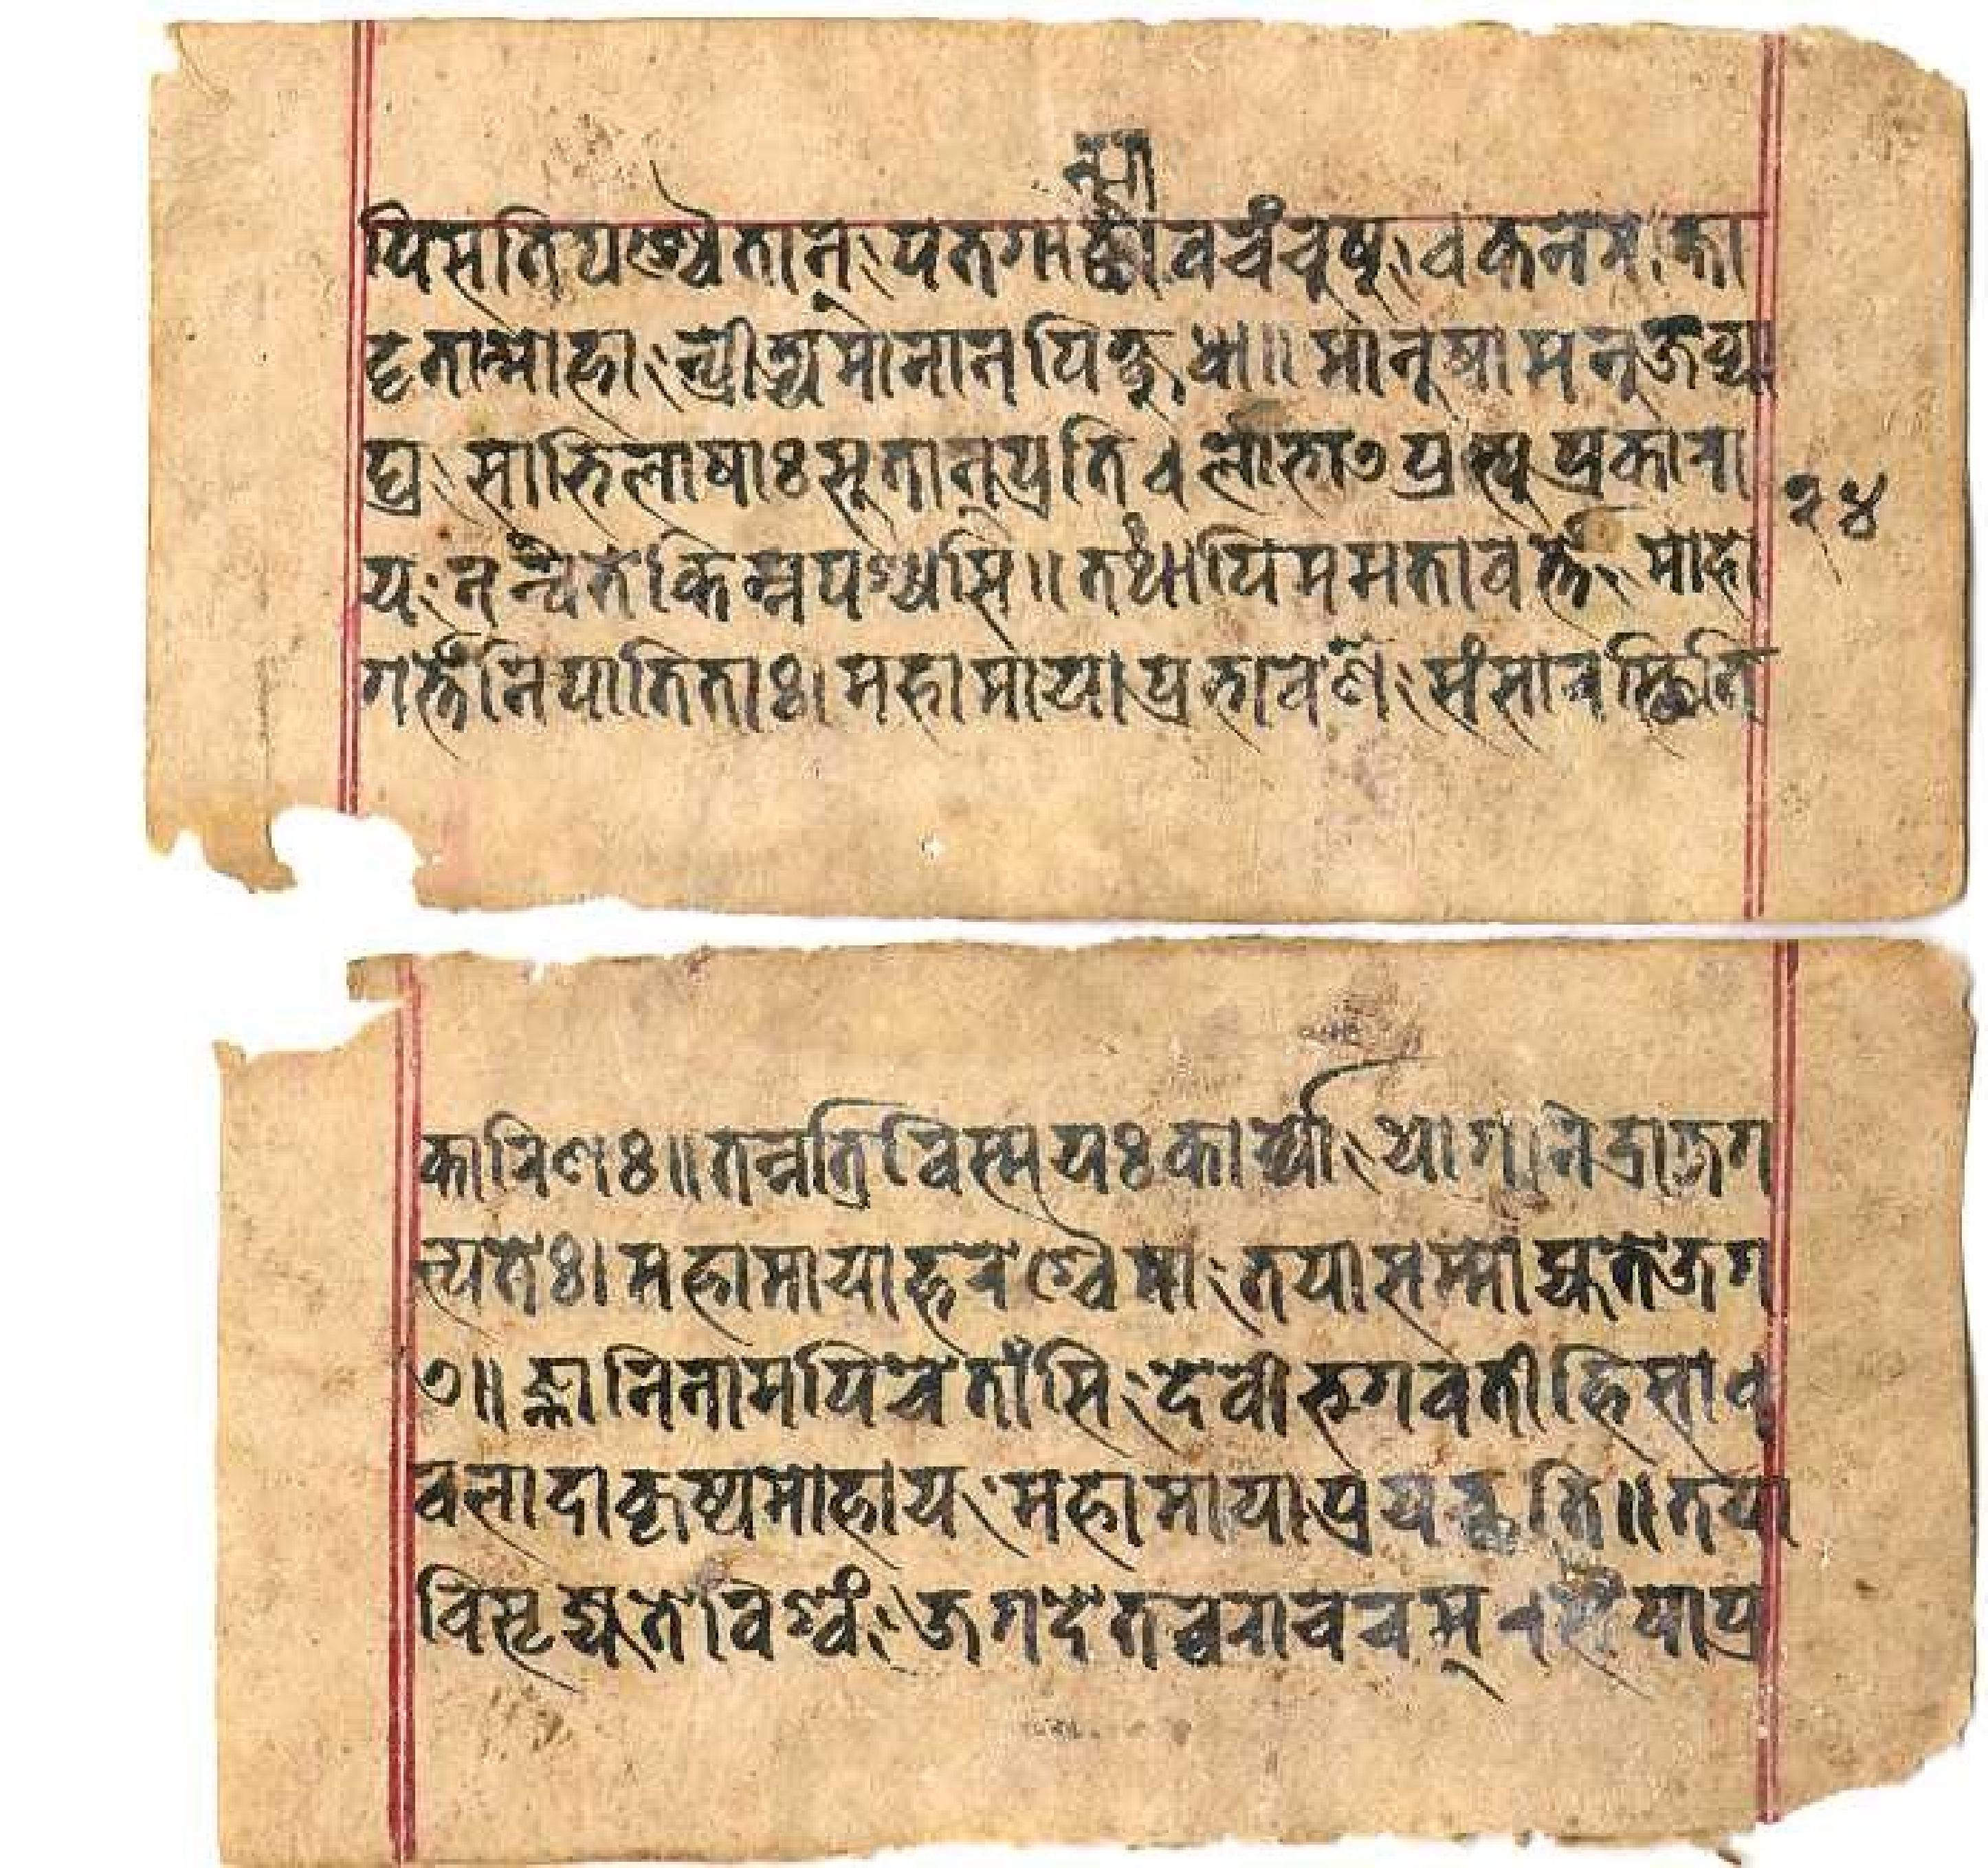 पि सति पश्यैतान् पतगाञ्छावचंचुषु । कनमोक्षा
दृतान्मोहा त्पीड्यमानानपि क्षुधा ॥ मानुषा मनुजव्या
घ्र साभिलाषाः सुतान् प्रति । लोभात् प्रत्युपकारा
य नन्वेते किन्न पश्यसि ॥ तथापि ममतावर्त्ते मोह
२४
गर्त्ते निपातिताः । महामाया प्रभावेण संसारस्थिति
कारिणः ॥ तन्नात्र विस्मयः कार्यो योगनिद्रा जग
त्पतेः । महामाया हरेश्चैषा तया सम्मोह्यते जग
त् ॥ ज्ञानिनामपि चेतांसि देवी भगवती हि सा ।
बलादाकृष्य मोहाय महामाया प्रयच्छति ॥ तया
विसृज्यते विश्वं जगदेतच्चराचरम् । सैषा प्र